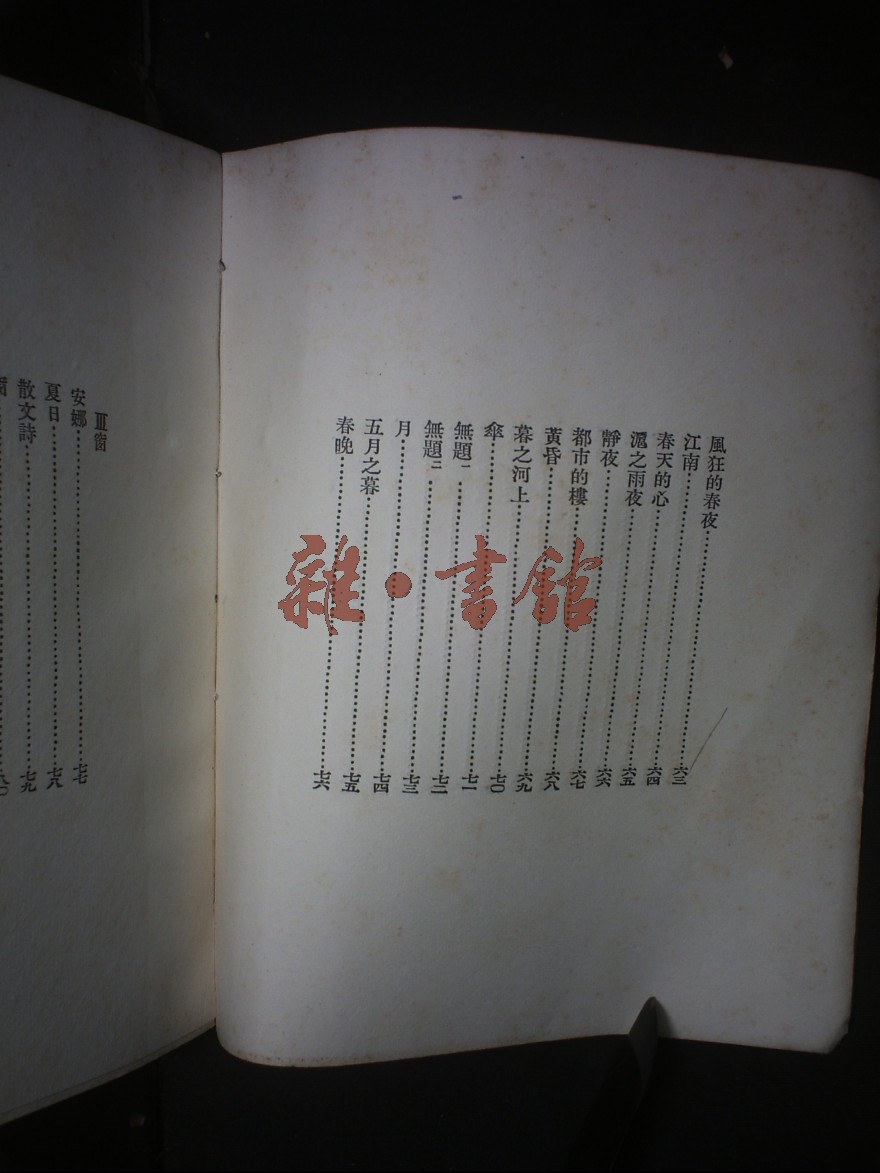 風狂的春夜……六三
江南……六四
春天的心……六五
滬之雨夜……六六
靜夜……六七
都市的樓……六八
黃昏……六九
暮之河上……七〇
傘……七一
無題一……七二
無題二……七三
月……七四
五月之暮……七五
春晚……七六
III窗
安娜……七七
夏日……七八
散文詩……七九
八〇
雜·書館